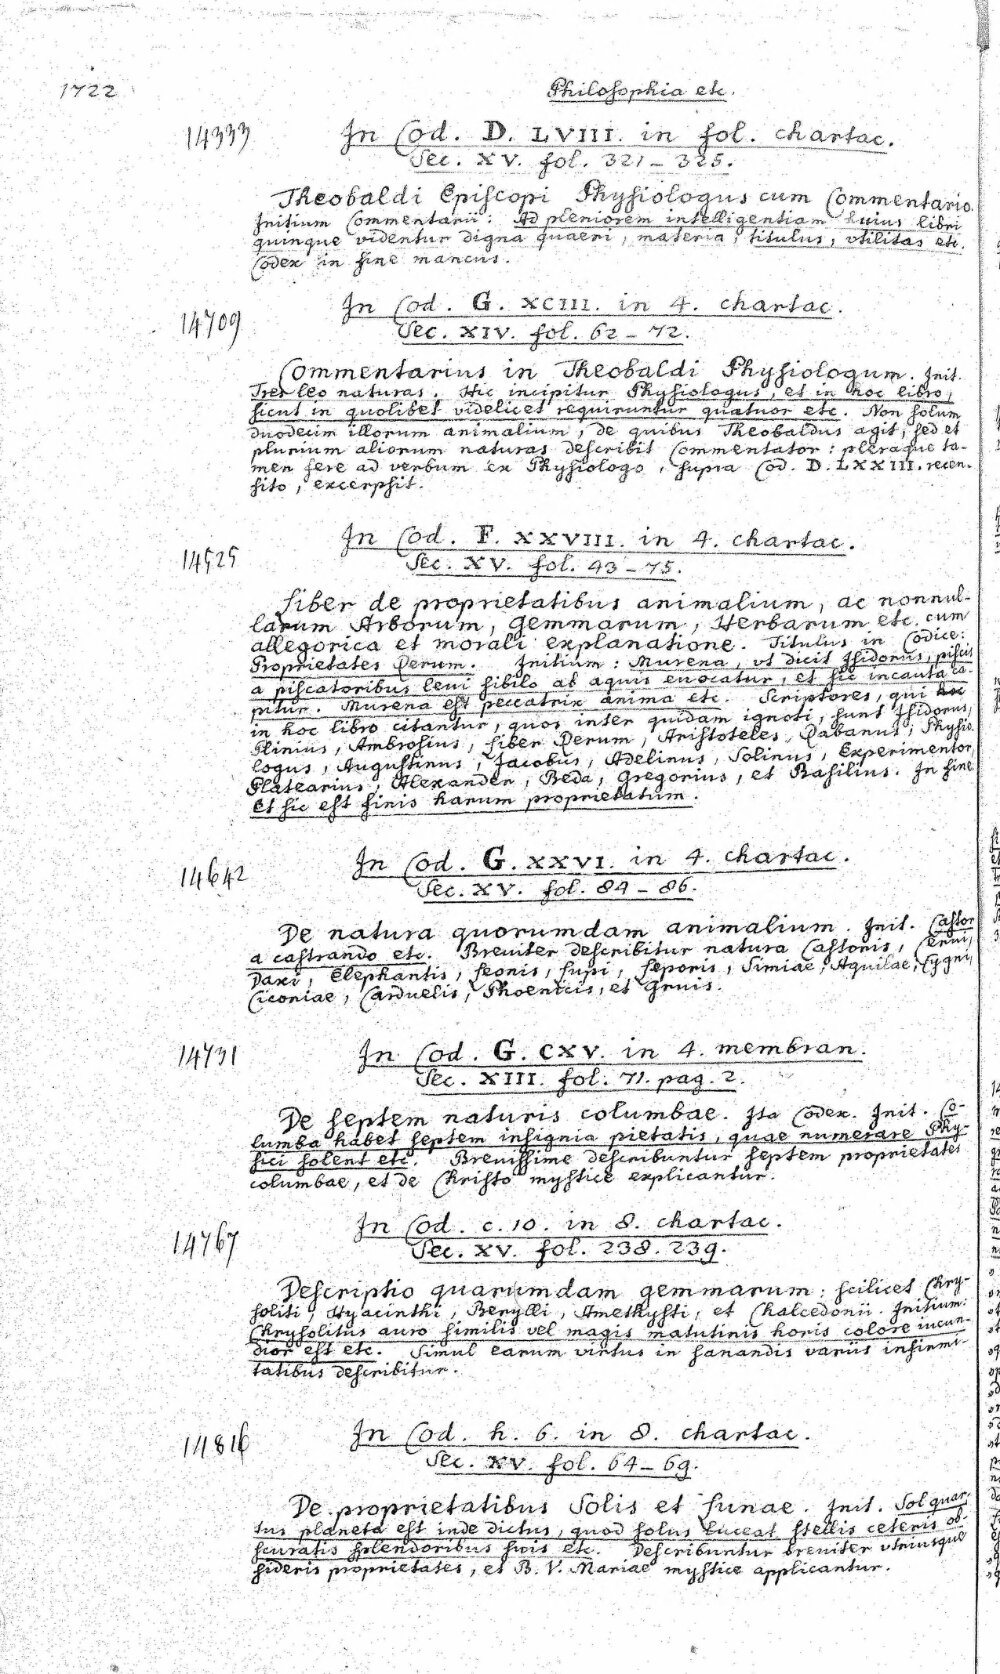 1722
Philosophia etc.
14333
In Cod. D. LVIII. in fol. chartac.
Sec. XV. fol. 321–325.
Theobaldi Episcopi Physiologus cum Commentario.
Initium Commentarii: Ad pleniorem intelligentiam huius libri
quinque videntur digna quaeri, materia, titulus, utilitas etc.
Codex in fine mancus.
14709
In Cod. G. XCIII. in 4. chartac.
Sec. XIV. fol. 62–72.
Commentarius in Theobaldi Physiologum. Init.
Tres leo naturas. Hic incipitur Physiologus, et in hoc libro,
sicut in quolibet videlicet requiruntur quatuor etc. Non solum
duodecim illorum animalium, de quibus Theobaldus agit, sed et
plurium aliorum naturas describit Commentator: pleraque ta-
men fere ad verbum ex Physiologo, supra Cod. D. LXXIII. recen-
sito, excerpsit.
14525
In Cod. F. XXVIII. in 4. chartac.
Sec. XV. fol. 43–75.
Liber de proprietatibus animalium, ac nonnul-
larum Arborum, Gemmarum, Herbarum etc. cum
allegorica et morali explanatione. Titulus in Codice:
Proprietates Rerum. Initium: Murena, ut dicit Isidorus, piscis
a piscatoribus leui sibilo ab aquis euocatur, et sic incauta ca-
pitur. Murena est peccatrix anima etc. Scriptores, qui
in hoc libro citantur, quos inter quidam ignoti, sunt Isidorus,
Plinius, Ambrosius, Liber Rerum, Aristoteles, Rabanus, Physio-
logus, Augustinus, Jacobus, Adelinus, Solinus, Experimentor,
Platearius, Alexander, Beda, Gregorius, et Basilius. In fine
Et sic est finis harum proprietatum.
14642
In Cod. G. XXVI. in 4. chartac.
Sec. XV. fol. 84–86.
De natura quorumdam animalium. Init. Castor
a castrando etc. Breviter describitur natura Castoris, Cerui,
Daxi, Elephantis, Leonis, Lupi, Leporis, Simiae, Aquilae, Cygni,
Ciconiae, Carduelis, Phoenicis, et Gruis.
14731
In Cod. G. CXV. in 4. membran.
Sec. XIII. fol. 71. pag. 2.
De septem naturis columbae. Ita Codex. Init. Co-
lumba habet septem insignia pietatis, quae numerare Phy-
sici solent etc. Brevissime describuntur septem proprietates
columbae, et de Christo mystice explicantur.
14767
In Cod. c. 10. in 8. chartac.
Sec. XV. fol. 238. 239.
Descriptio quarumdam gemmarum: scilicet Chry-
soliti, Hyacinthi, Berylli, Amethysti, et Chalcedonii. Initium:
Chrysolitus auro similis vel magis matutinis horis colore iucun-
dior est etc. Simul earum virtus in sanandis variis infirmi-
tatibus describitur.
14816
In Cod. h. 6. in 8. chartac.
Sec. XV. fol. 64–69.
De proprietatibus Solis et Lunae. Init. Sol quar-
tus planeta est inde dictus, quod solus luceat stellis ceteris ob-
scuratis splendoribus suis etc. Describuntur breviter utriusque
sideris proprietates, et B. V. Mariae mystice applicantur.